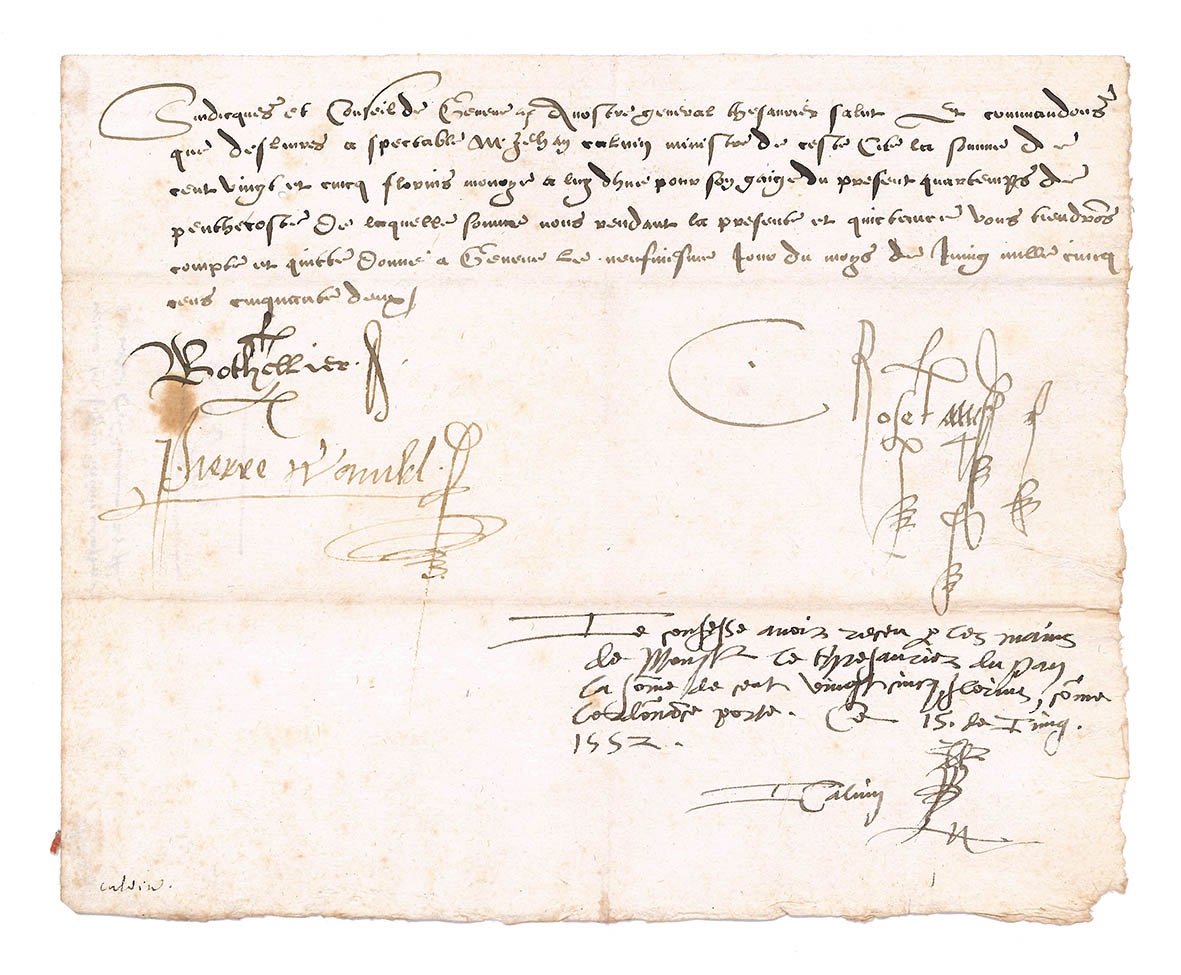 Sindicques et Conseil de Geneve A nostre general thesaurier salut Et commandons
que deslivres a spectable M. Jehan calvin ministre de ceste Cite la somme de
cent vingt et cincq florins monoye a luy dheue pour son gaige du present quartemps de
penthecoste De laquelle somme nous rendant la presente et quictance vous tiendrons
compte et quicte Donne a Geneve Le neufviesme Jour du moys de Juing mille cincq
cens cinquante deux
Bothellier
Pierre
Roset
Je confesse avoir receu p les mains
de Monsr le thresaurier du
la sõme de cent vingt cincq florins, cõme
lordonãce porte. Ce 15. de Juing.
1552.
J Calvin
calvin.